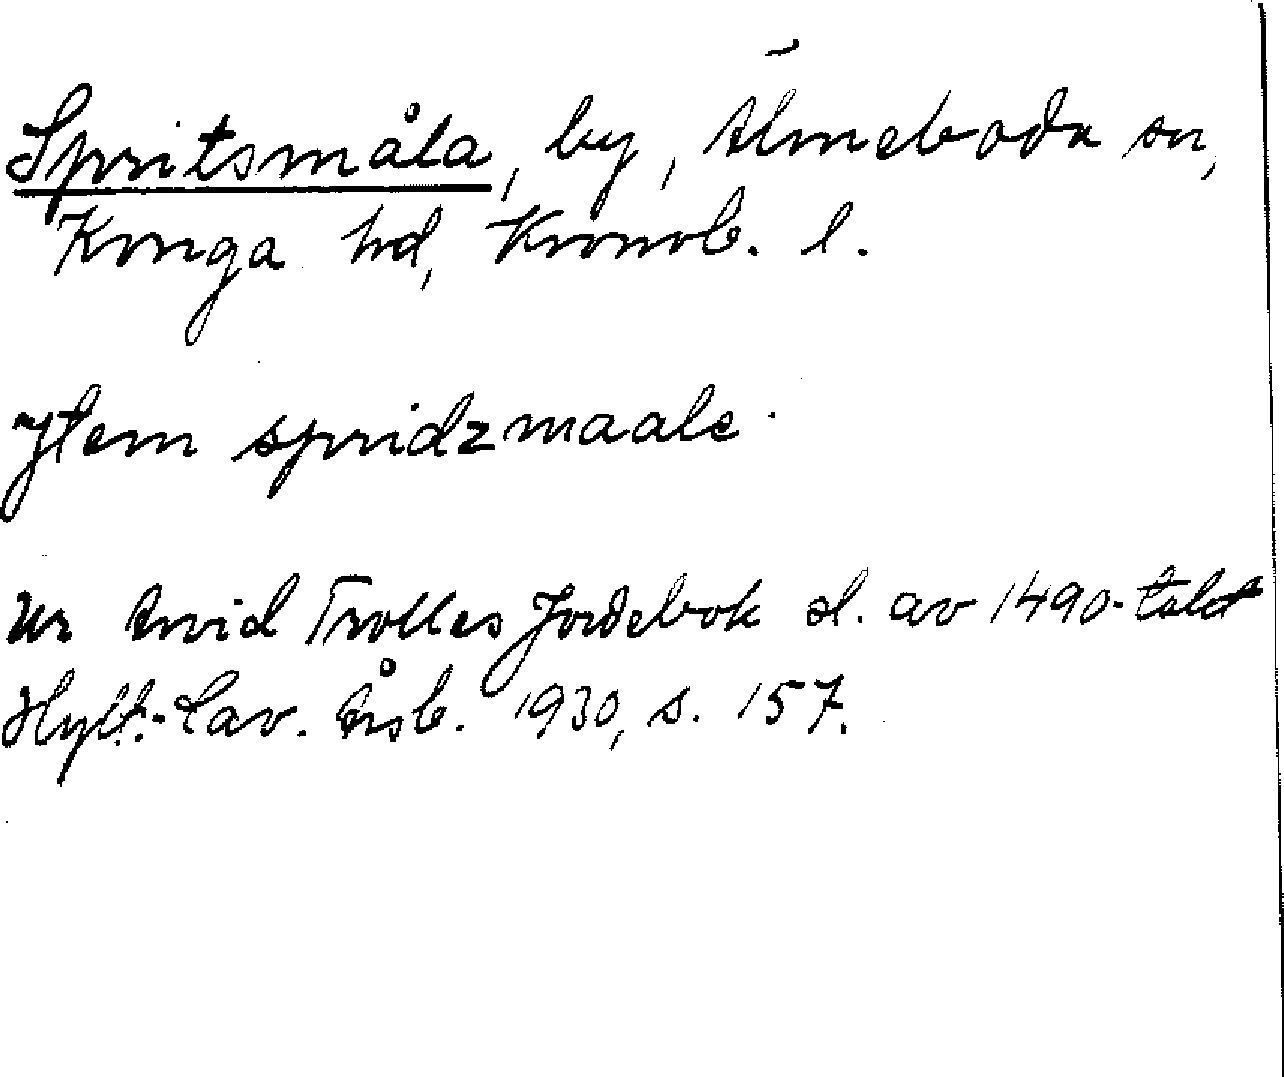 Spritsmåla, by, Älmeboda sn,
Konga hd, Kronob. l.
Jtem spridzmaale.
Ur Arvid Trolles Jordebok sl. av 1490-talet
Hylt.-Cav. Årsb. 1930, s. 157.